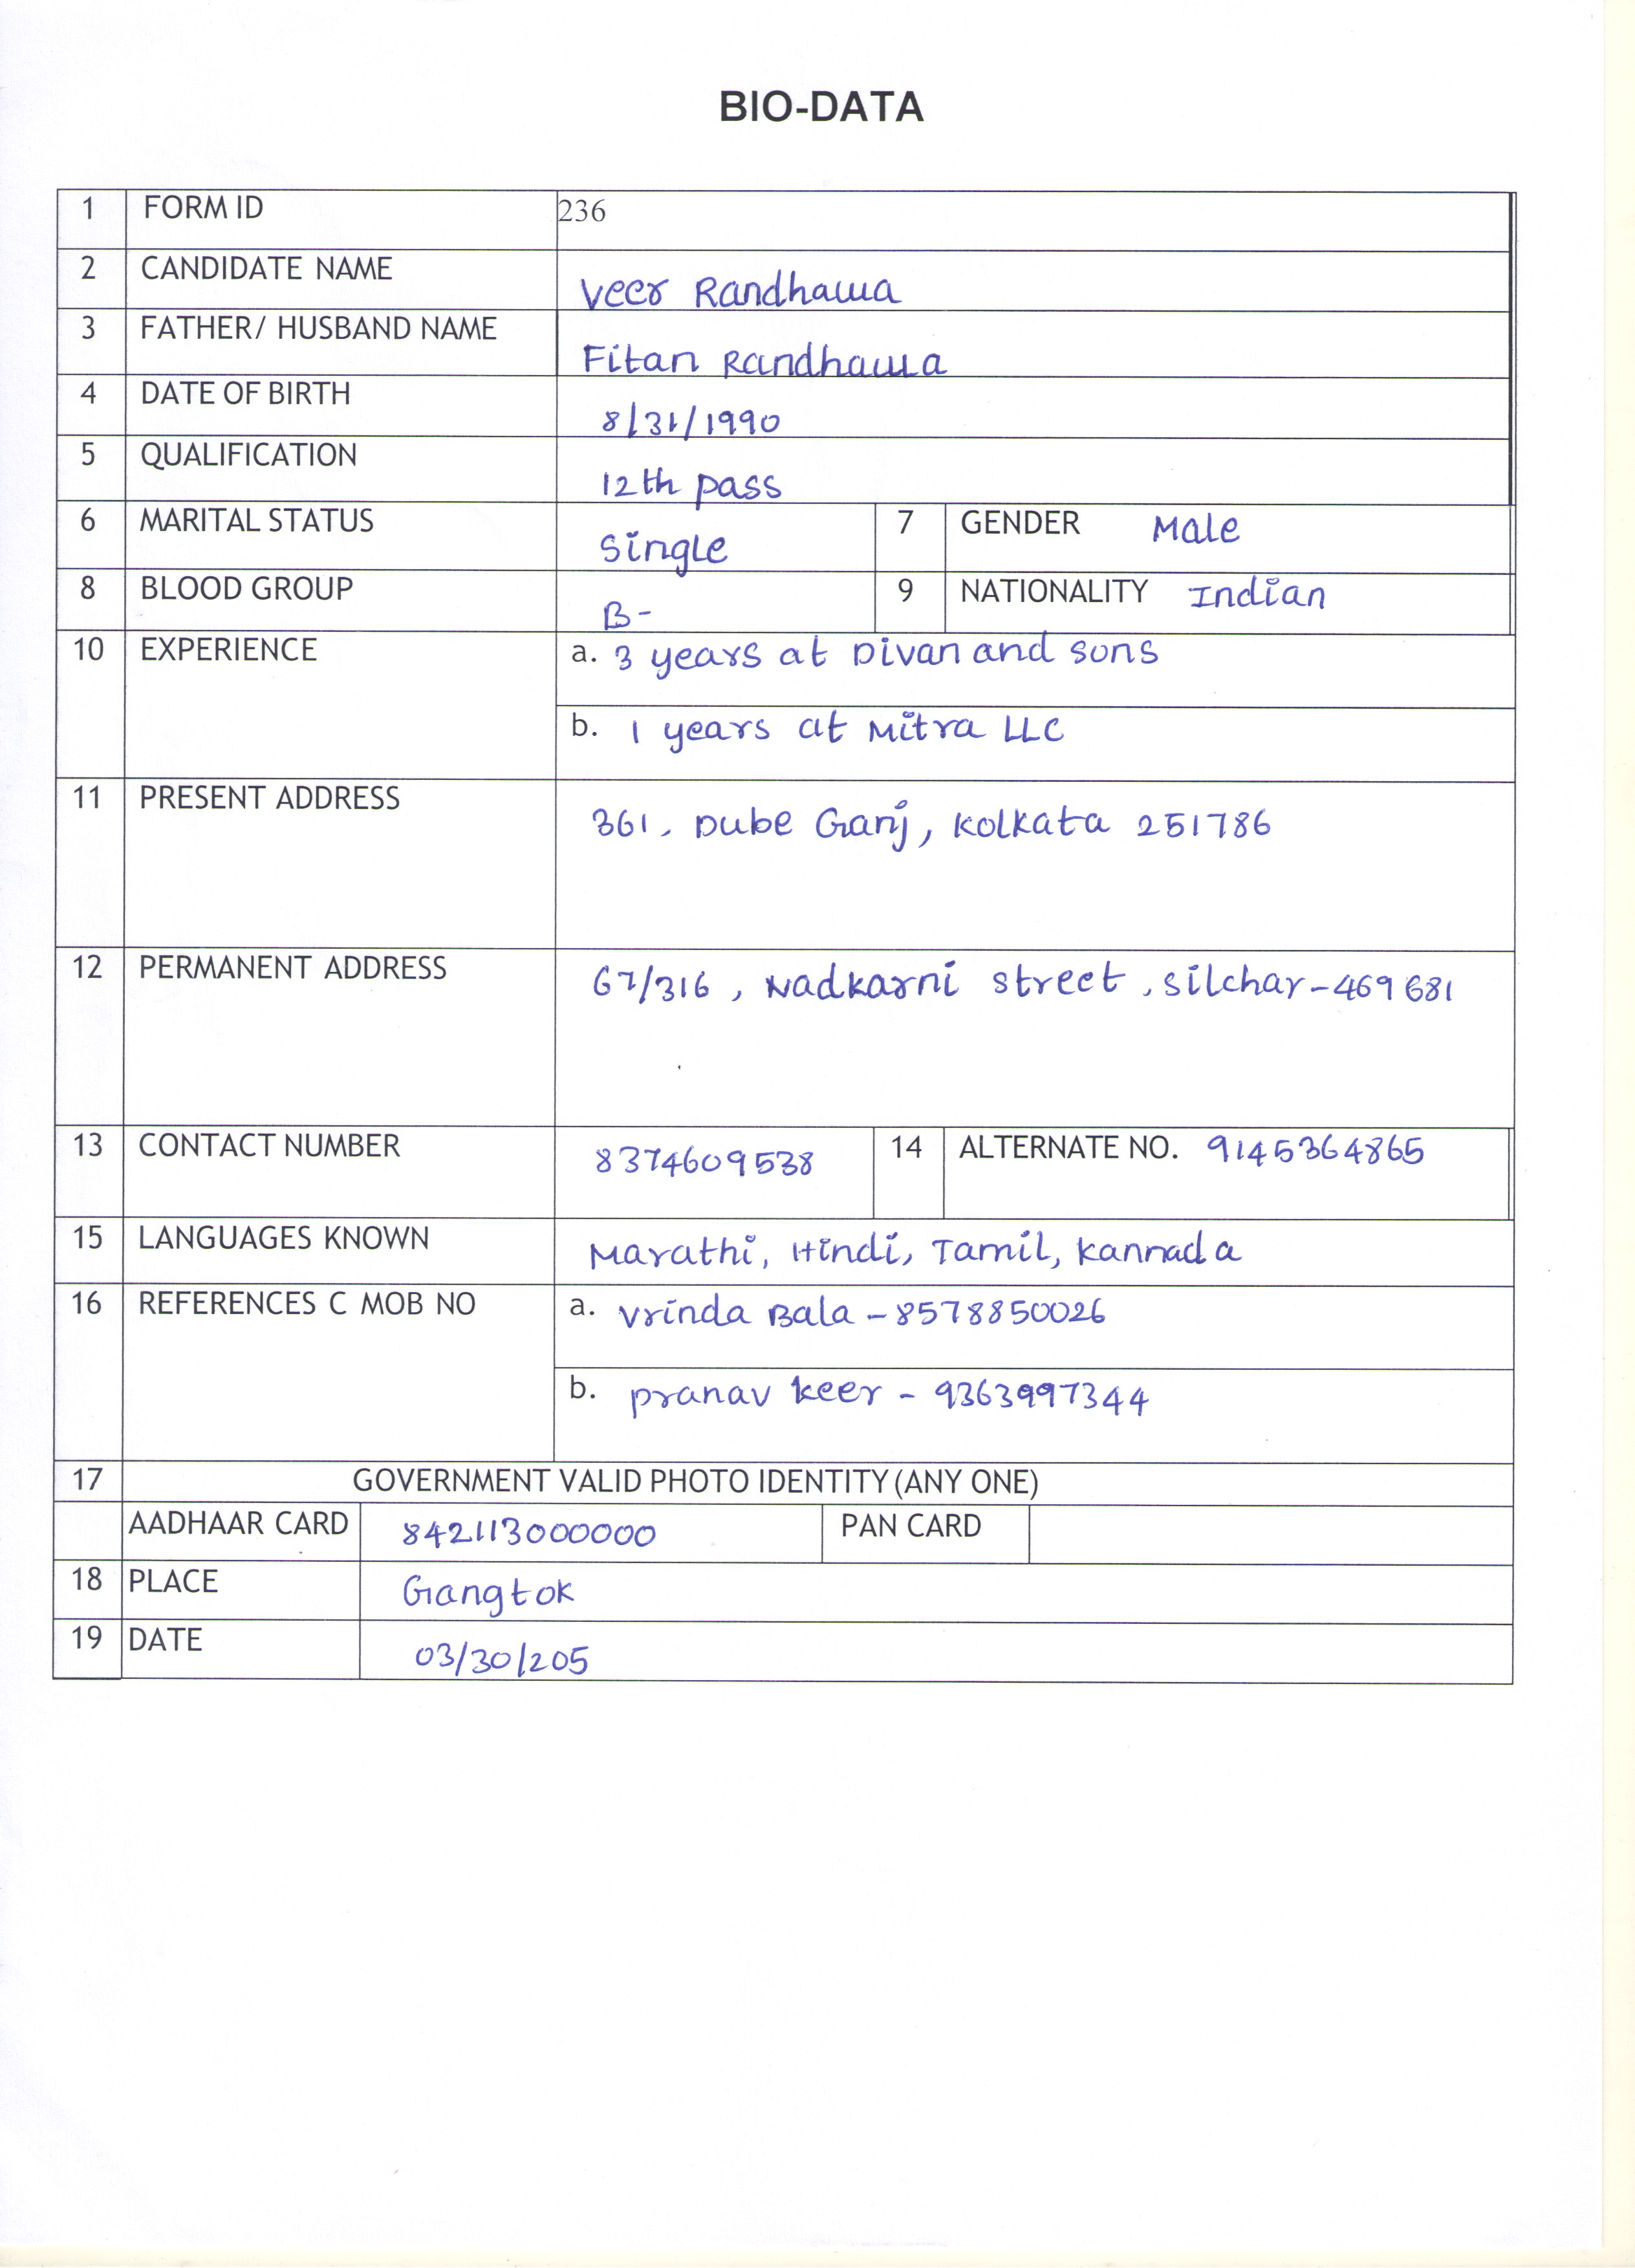 BIO-DATA
1 FORM ID 236
2 CANDIDATE NAME Veer Randhawa
3 FATHER/ HUSBAND NAME Fitan Randhawa
4 DATE OF BIRTH 8/31/1990
5 QUALIFICATION 12th pass
6 MARITAL STATUS Single 7 GENDER Male
8 BLOOD GROUP B- 9 NATIONALITY Indian
10 EXPERIENCE a. 3 years at Divan and sons
b. 1 years at Mitra LLC
11 PRESENT ADDRESS 361, Dube Ganj, Kolkata 251786
12 PERMANENT ADDRESS 67/316, Nadkarni street, Silchar-469681
13 CONTACT NUMBER 8374609538 14 ALTERNATE NO. 9145364865
15 LANGUAGES KNOWN Marathi, Hindi, Tamil, Kannada
16 REFERENCES C MOB NO a. Vrinda Bala - 8578850026
b. Pranav Keer - 9363997344
17 GOVERNMENT VALID PHOTO IDENTITY (ANY ONE)
AADHAAR CARD 842113000000 PAN CARD
18 PLACE Gangtok
19 DATE 03/30/205